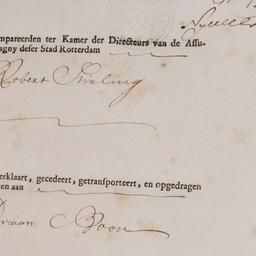 mpareerden ter Kamer der Directeurs van de Assu-
agny deser Stad Rotterdam
Robert
erklaart, gecedeert, getransporteert, en opgedragen
en aan
Adriaan Boon